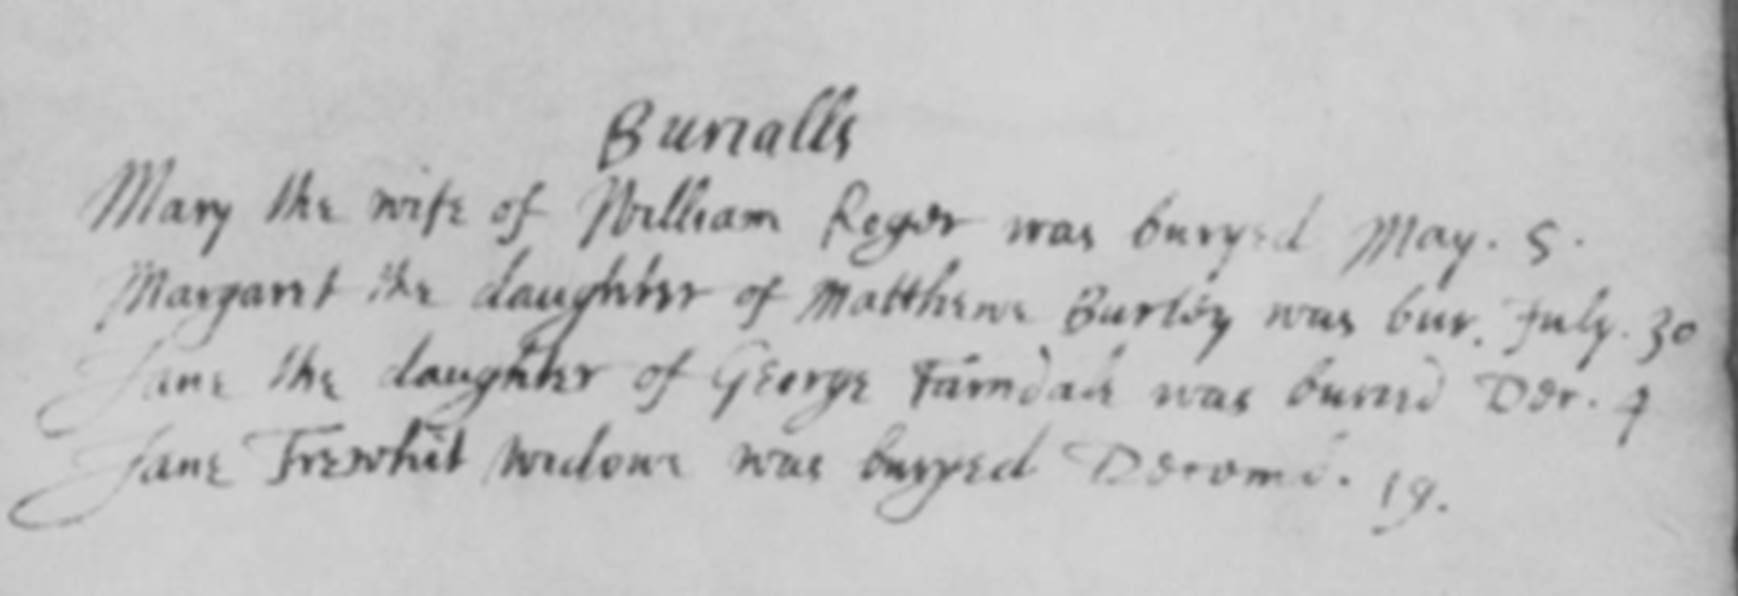 Burialls
Mary the wife of William Roger was buryed May. 5.
Margaret the daughter of Matthewe Burley was bur. July. 30
Jane the daughter of George Farndale was buried Dec. 4
Jane Trewhit widowe was buryed Decemb. 19.